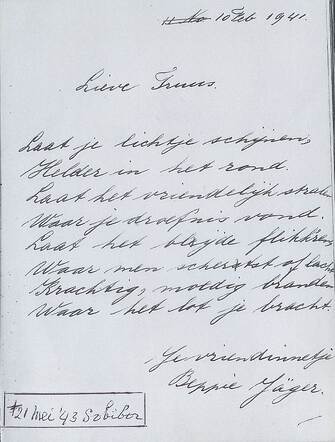 10 Feb 1941.
Lieve Truus.
Laat je lichtje schijnen,
Helder in het rond.
Laat het vriendelijk stralen
Waar je droefnis vond.
Laat het blijde flikkren,
Waar men schertst of lach
Krachtig, moedig branden
Waar het lot je bracht.
Je vriendinnetje
Beppie Jäger.
†21 Mei '43 Sobibor